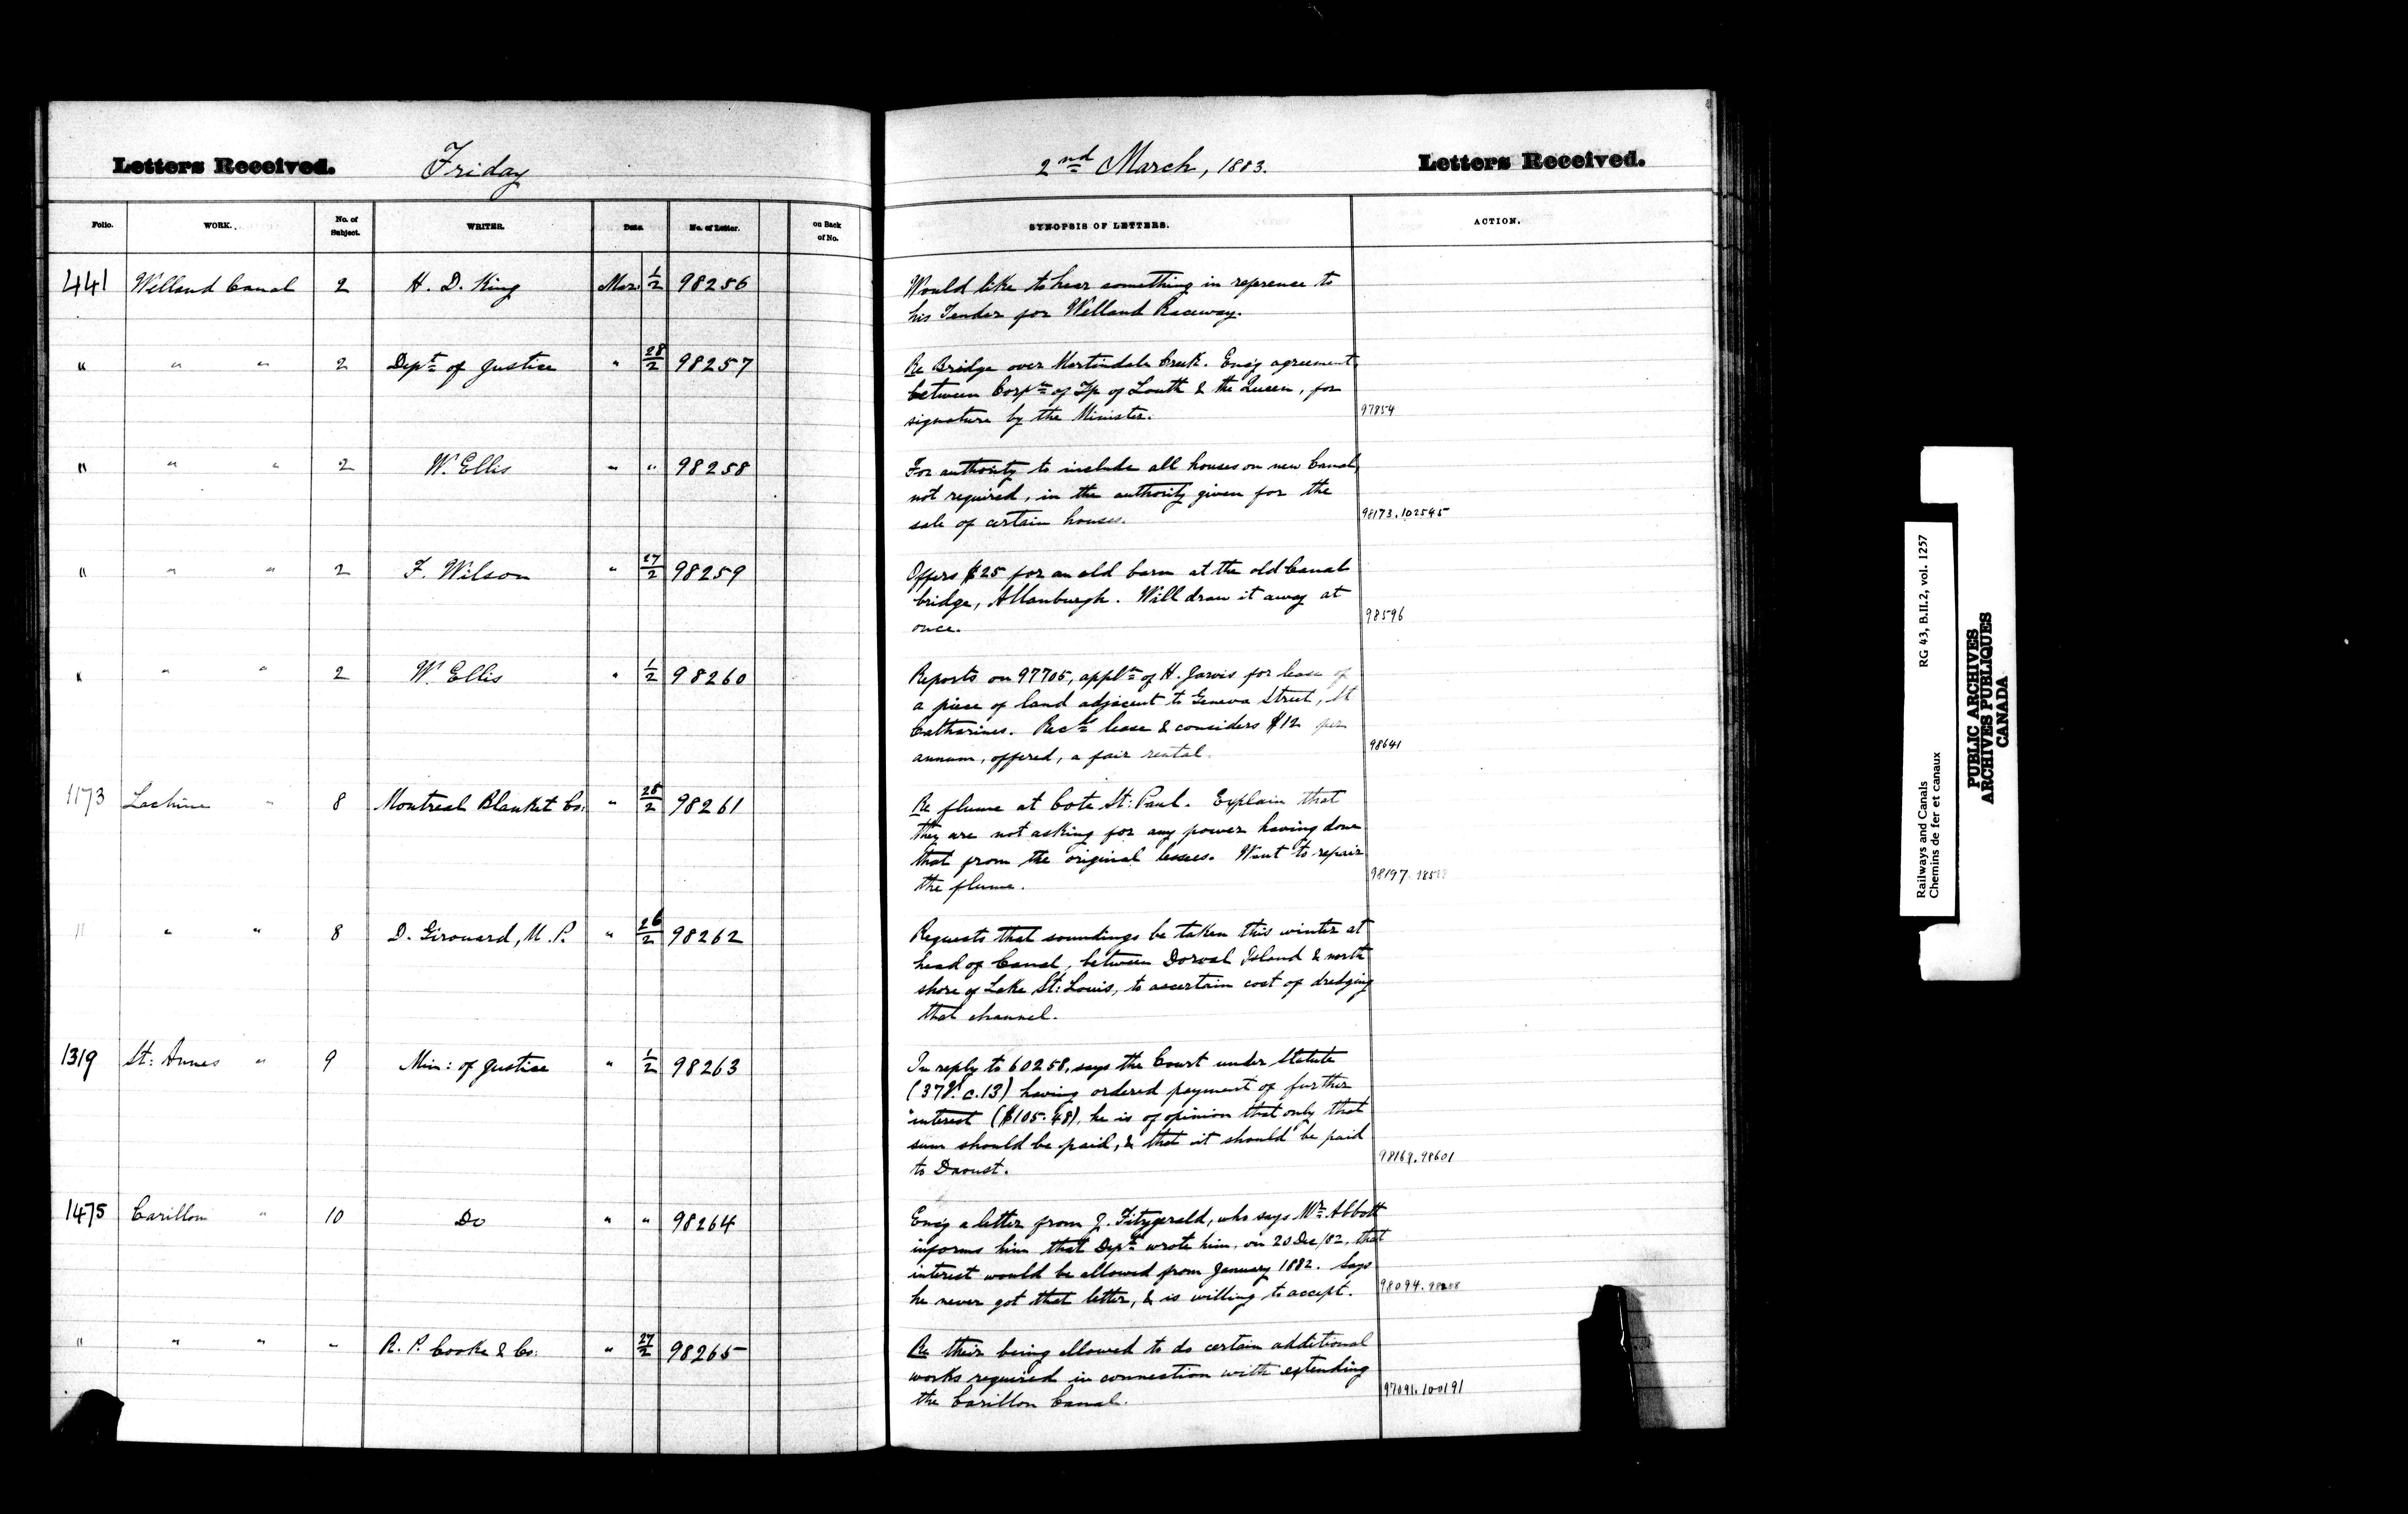 Letters Received.
Friday
Folio. WORK. No. of Subject. WRITER. Date. No. of Letter. on Back of No.
441 Welland Canal 2 H. D. King Mar. 1/2 98256
" " " 2 Dept of Justice " 28/2 98257
" " " 2 W. Ellis " " 98258
" " " 2 F. Wilson " 27/2 98259
" " " 2 W. Ellis " 1/2 98260
1173 Lachine " 8 Montreal Blanket Co: " 28/2 98261
" " " 8 D. Girouard, M.P. " 26/2 98262
1319 St: Annes " 9 Min: of Justice " 1/2 98263
1475 Carillon " 10 Do " " 98264
" " " " R. P. Cooke & Co: " 27/2 98265
2nd March, 1883.
Letters Received.
SYNOPSIS OF LETTERS. ACTION.
Would like to hear something in reference to
his Tender for Welland Raceway.
Re Bridge over Martindale Creek. Encg agreement
between Corptn of Tp of Louth & the Queen, for
signature by the Minister.
97854
For authority to include all houses on new Canal,
not required, in the authority given for the
sale of certain houses.
98173.102545
Offers $25 for an old barn at the old Canal
bridge, Allanburgh. Will draw it away at
once.
98596
Reports on 97705, appltn of H. Jarvis for lease of
a piece of land adjacent to Geneva Street, St
Catharines. Recds lease & considers $12 per
annum, offered, a fair rental.
98641
Re flume at Cote St: Paul. Explain that
they are not asking for any power having done
that from the original lessees. Want to repair
the flume.
98197.
Requests that soundings be taken this winter at
head of Canal, between Dorval Island & north
shore of Lake St: Louis, to ascertain cost of dredging
that channel.
In reply to 60258, says the Court under Statute
(37V. c.13) having ordered payment of further
interest ($105.48), he is of opinion that only that
sum should be paid, & that it should be paid
to Daoust.
98169.98601
Encg a letter from J. Fitzgerald, who says Mr Abbott
informs him that Dept wrote him, on 20 Dec/82, that
interest would be allowed from January 1882. Says
he never got that letter, & is willing to accept.
98094.
Re their being allowed to do certain additional
works required in connection with extending
the Carillon Canal.
97091.100191
Railways and Canals RG 43, B.II.2, vol. 1257
Chemins de fer et canaux
PUBLIC ARCHIVES
ARCHIVES PUBLIQUES
CANADA